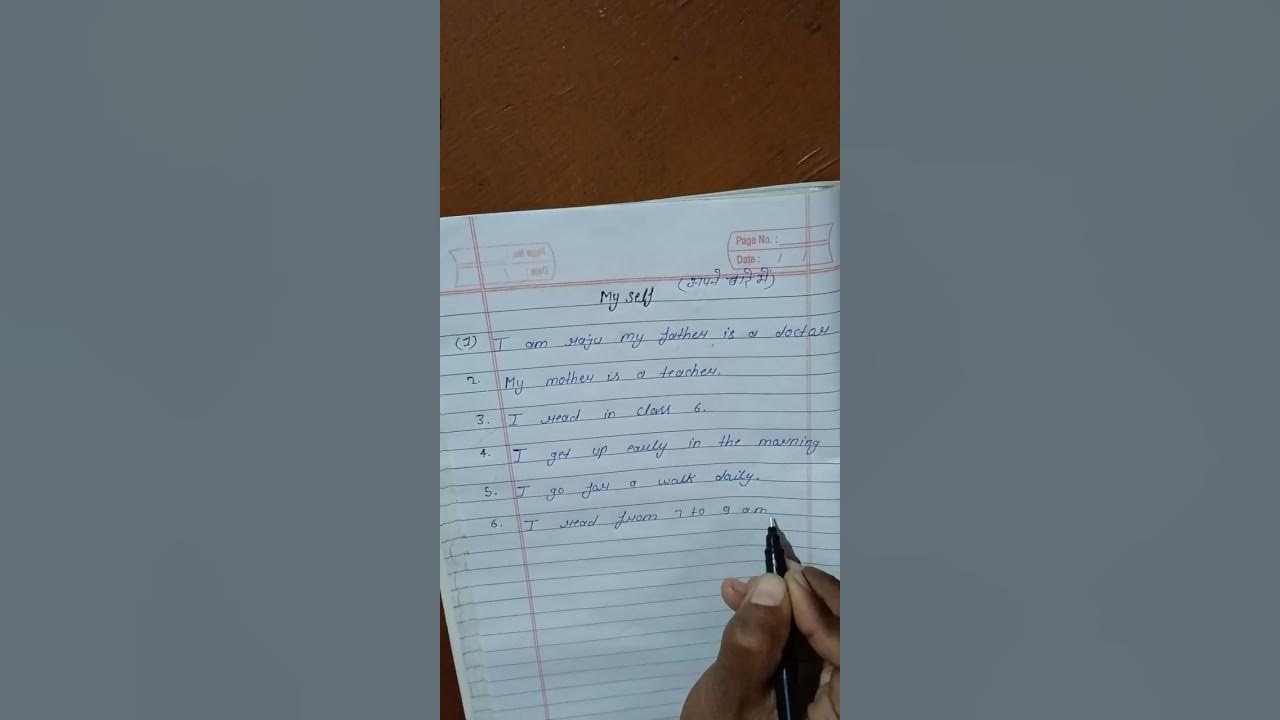 Page No. :
Date : / /
Page No.
Date :
My self (अपने बारे में)
(1) I am raju my father is a doctor
2. My mother is a teacher.
3. I read in class 6.
4. I get up early in the morning
5. I go for a walk daily.
6. I read from 7 to 9 am